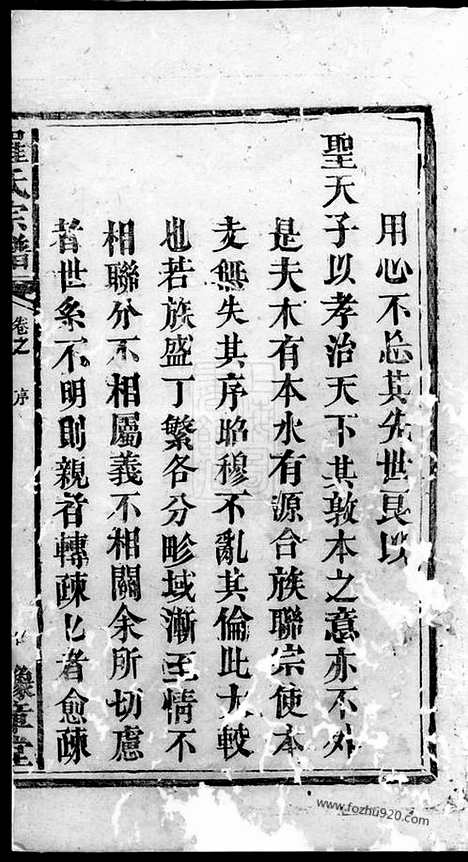 用心不忘其先世良以
聖天子以孝治天下其敦本之意亦不外
是夫木有本水有源合族聯宗使本
支無失其序昭穆不亂其倫此大較
也若族盛丁繁各分畛域漸至情不
相聯分不相屬義不相關余所切慮
者世系不明則親者轉疎疎者愈疎
羅氏宗譜
卷之
序
豫章堂
www.fozhu920.com